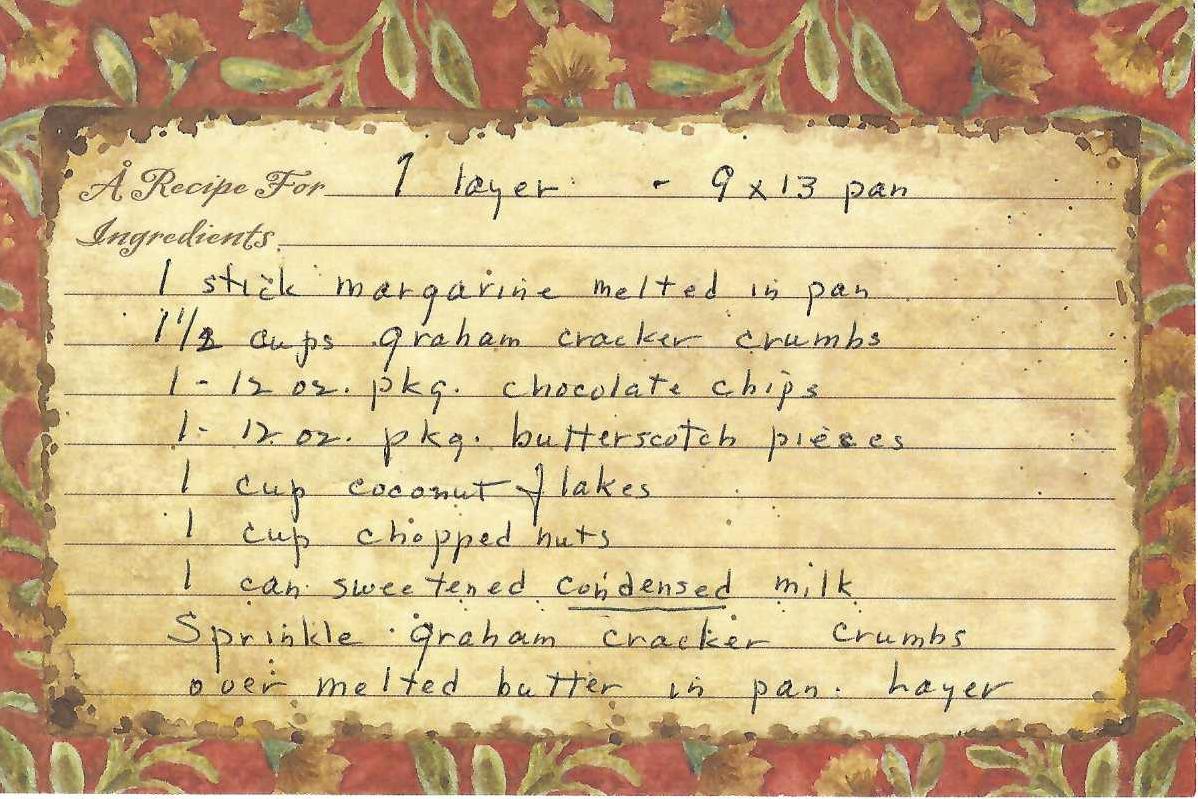 A Recipe For 7 layer - 9 x 13 pan
Ingredients
1 stick margarine melted in pan
1 1/2 cups graham cracker crumbs
1 - 12 oz. pkg. chocolate chips
1 - 12 oz. pkg. butterscotch pieces
1 cup coconut flakes
1 cup chopped nuts
1 can sweetened condensed milk
Sprinkle graham cracker crumbs
over melted butter in pan. Layer